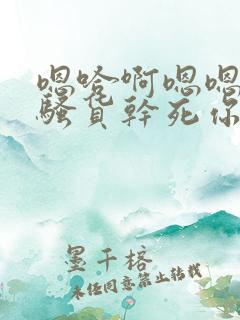 嗯哈啊嗯嗯
骚貟幹死你
墨千榕
未经同意禁止转载